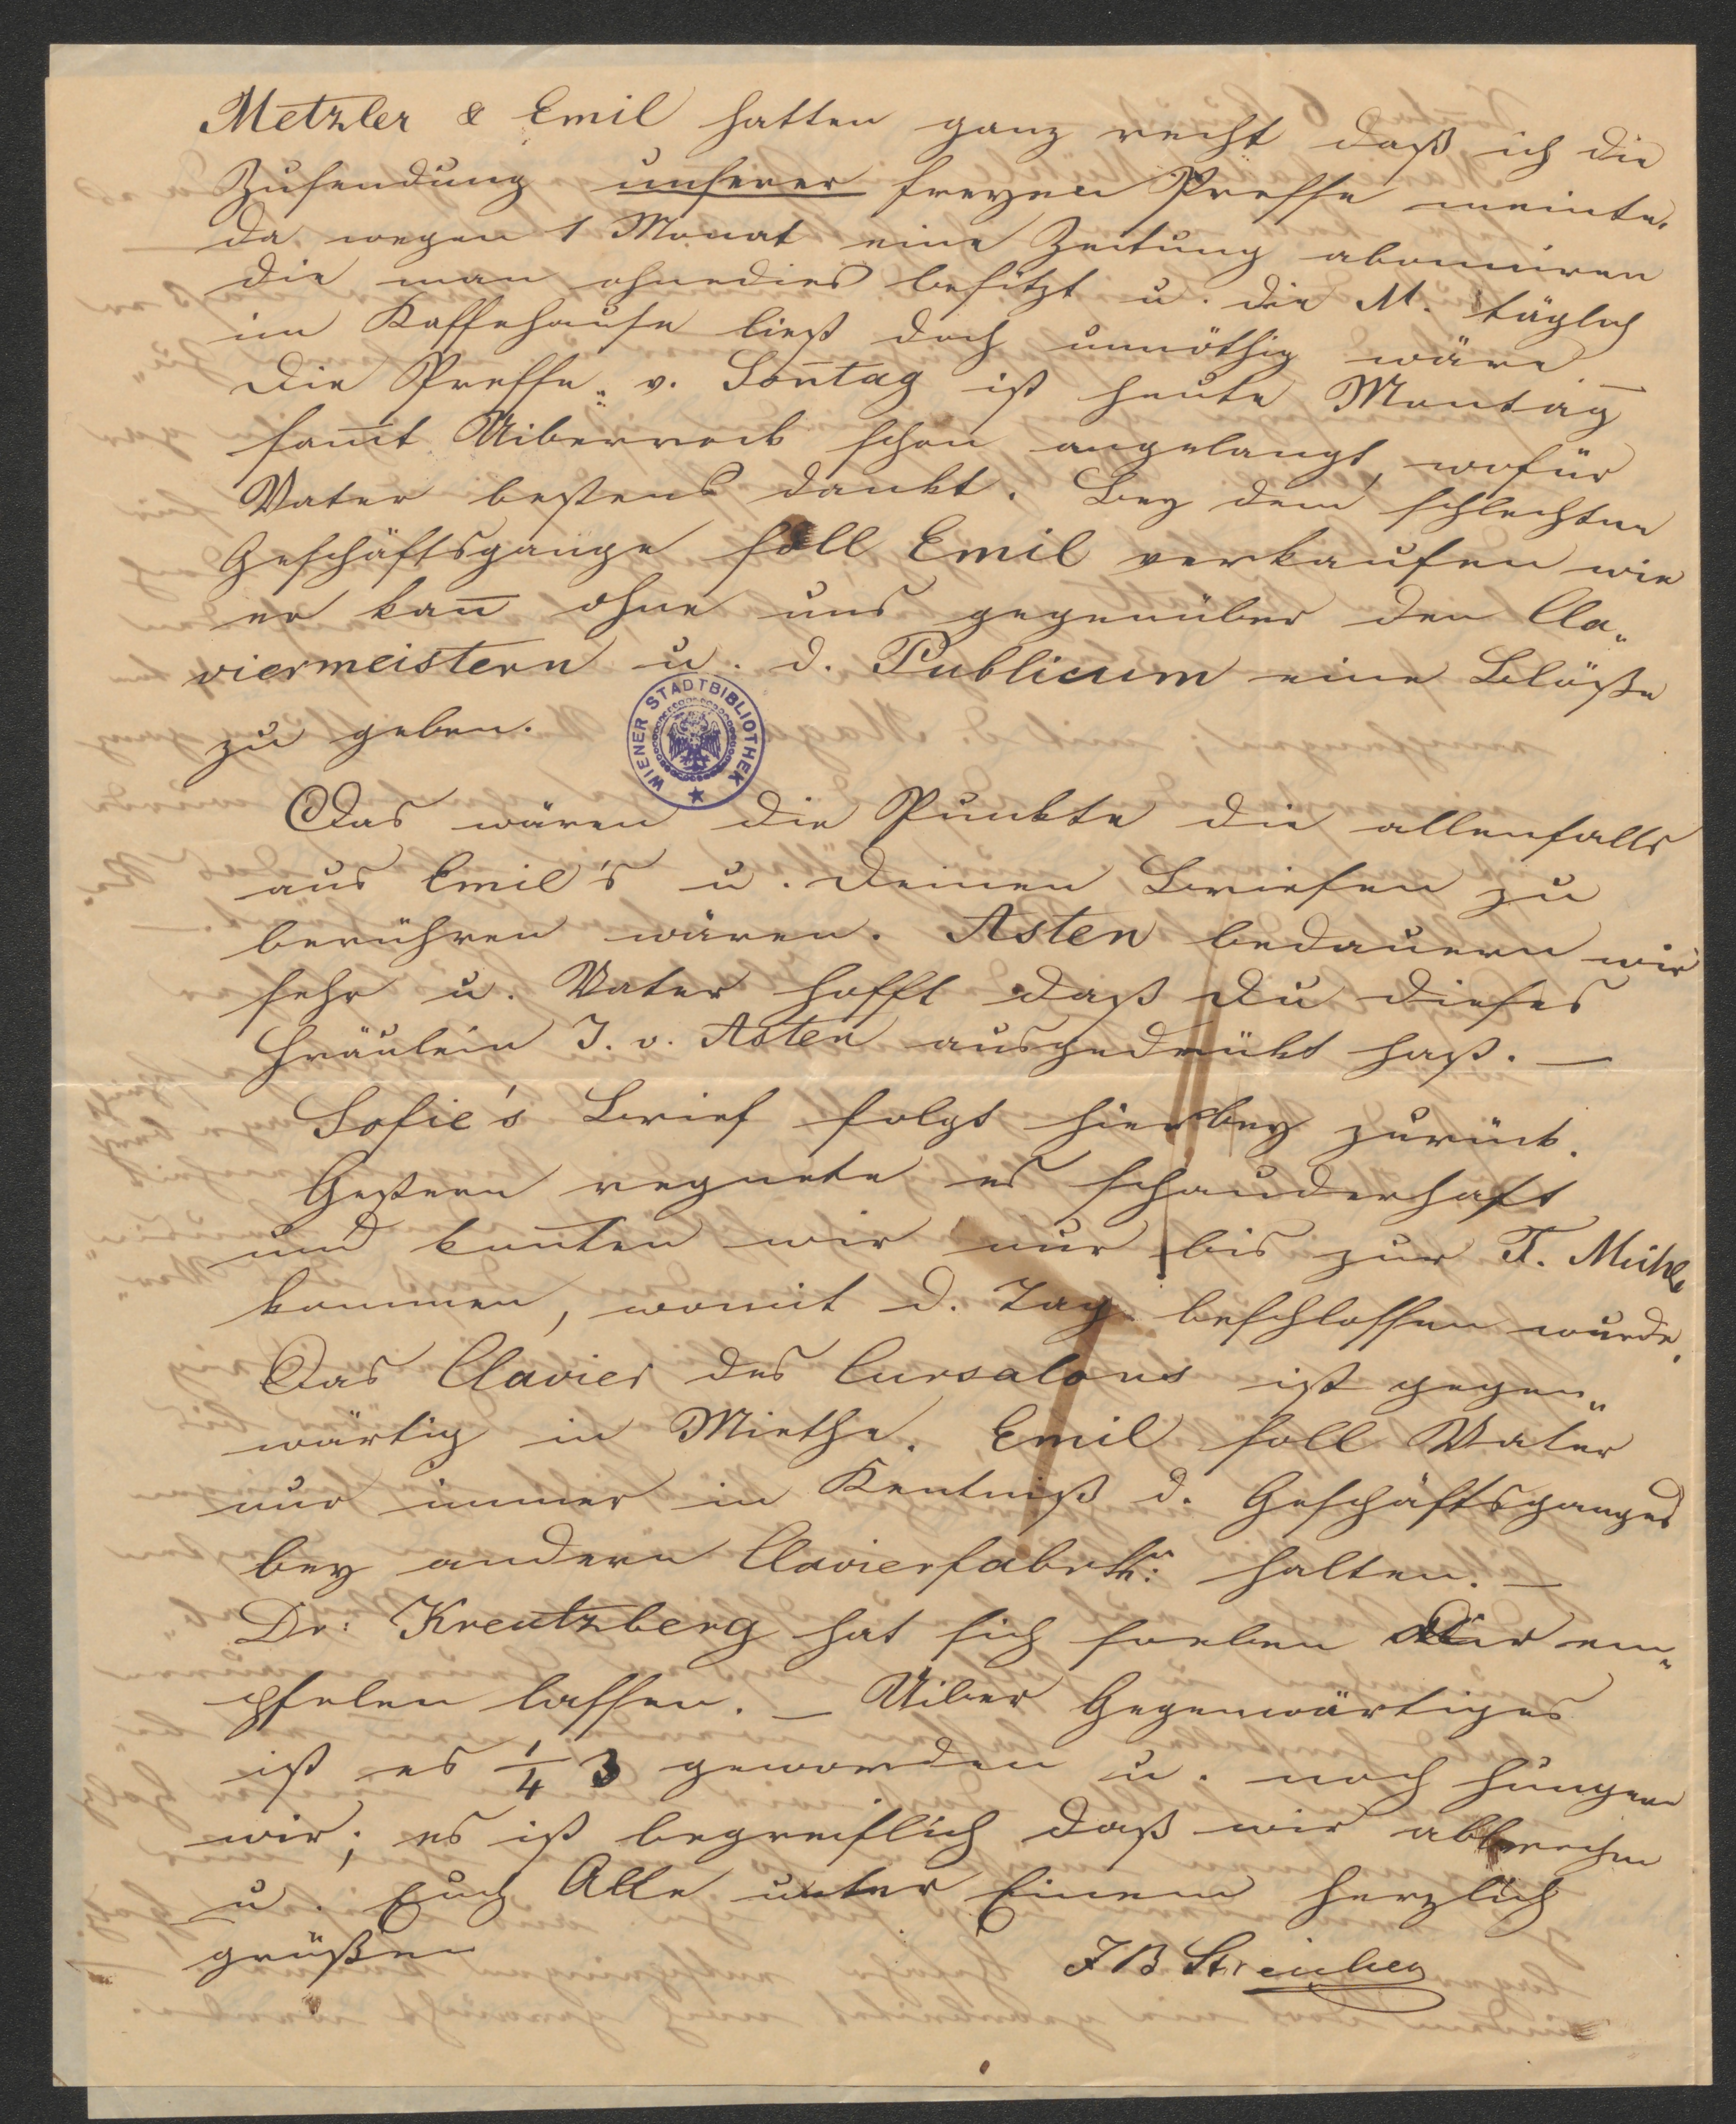 Metzler & Emil hatten ganz recht daß ich die
Zusendung unserer freyen Presse meinte.
da wegen 1 Monat eine Zeitung aboniren
die man ohnedies besitzt u. die M. täglich
im Kaffehause ließt doch unnöthig wäre –
Die Presse v. Son̄tag ist heute Montag
sam̄t Uiberrock schon angelangt, wofür
Vater bestens dankt. Bey dem schlechten
Geschäftsgange soll Emil verkaufen wie
er kan̄ ohne uns gegenüber den Cla„
viermeistern u. d. Publicum eine Blöße
zu geben.
WIENER STADTBIBLIOTHEK
Das wären die Punkte die allenfalls
aus Emil's u. Deinen Briefen zu
berühren wären. Asten bedauern wir
sehr u. Vater hofft daß Du dieses
Fräulein J. v. Asten ausgedrükt hast. –
Sofie's Brief folgt hierbey zurück.
Gestern regnete es schauderhaft
und kon̄ten wir nur bis zur T. Mühle
kommen, womit d. Tag beschlossen wurde.
Das Clavier des Cursalons ist gegen„
wärtig in Miethe. Emil soll Vater
nur immer in Kentniß d. Geschäftsganges
bey andern halten. –
Dr: Kreutzberg hat sich soeben Dir em„
pfelen lassen. – Uiber Gegenwärtiges
ist es 1/4 3 geworden u. noch hungern
wir; es ist begreiflich daß wir abbrechen
u. Euch Alle unter Einem herzlich
grüßen
J B Streicher